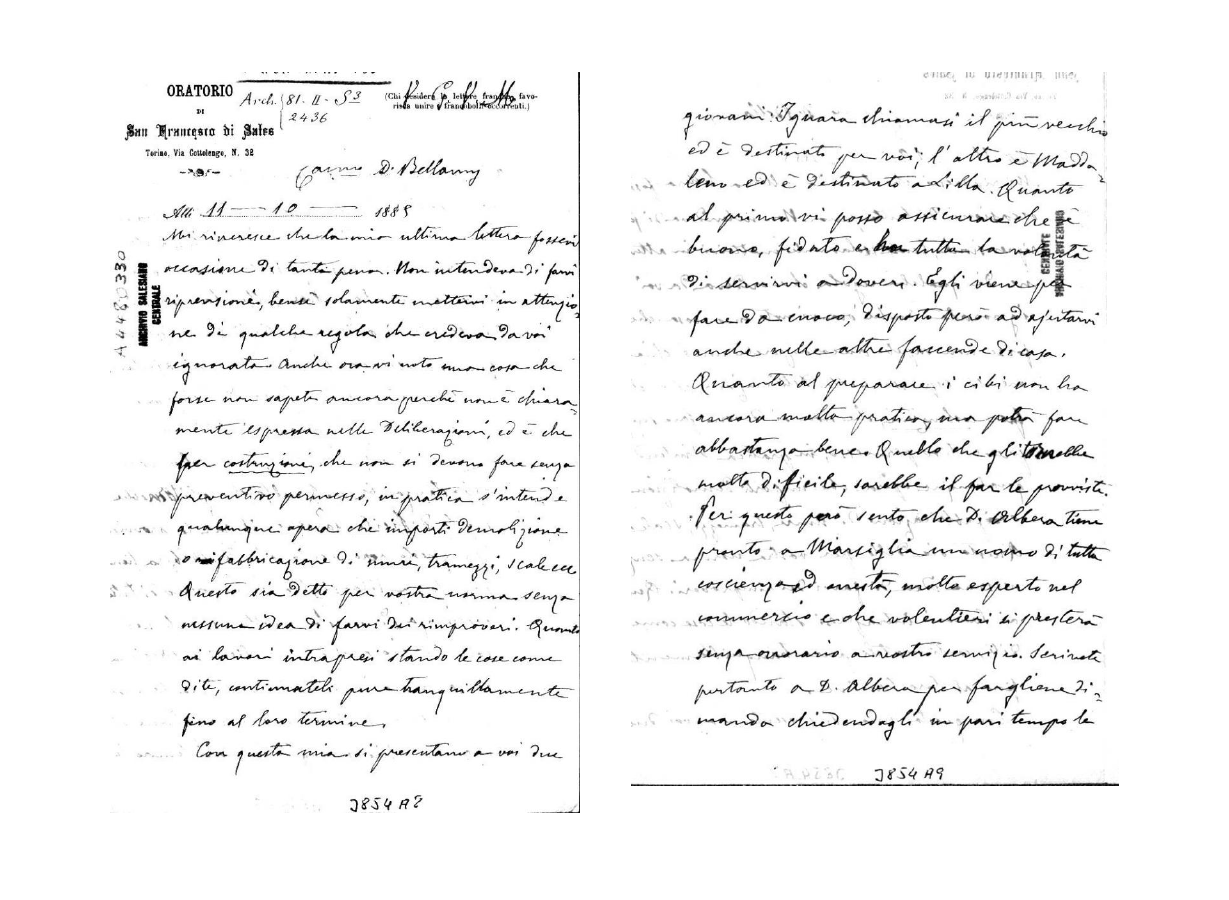 ORATORIO
DI
San Francesco di Sales
Torino, Via Cottolengo, N. 32
Arch. 81-II-S3
2436
(Chi desidera le lettere francate favo-
risca unire i francobolli occorrenti.)
Car.mo D. Bellamy
Alli 11 - 10 1885
Mi rincresce che la mia ultima lettera fossevi
occasione di tanta pena. Non intendeva di farvi
riprensione, bensì solamente mettervi in attenzio-
ne di qualche regola che credeva da voi
ignorata. Anche ora vi noto una cosa che
forse non sapete ancora perchè non è chiara-
mente espressa nelle Deliberazioni, ed è che
per costruzioni, che non si devono fare senza
preventivo permesso, in pratica s'intende
qualunque opera che importi demolizione
o fabbricazione di muri, tramezzi, scale ecc
Questo sia detto per vostra norma senza
nessuna idea di farvi dei rimproveri. Quanto
ai lavori intrapresi stando le cose come
dite, continuateli pure tranquillamente
fino al loro termine.
Con questa mia si presentano a voi due
J854 A8
A4480330
ARCHIVIO SALESIANO
CENTRALE
giovani. Iguara chiamasi il più vecchio
ed è destinato per voi; l'altro è Madda-
leno ed è destinato a Lilla. Quanto
al primo vi posso assicurare che è
buono, fidato e ha tutta la volontà
di servirvi a dovere. Egli viene per
fare da cuoco, disposto però ad ajutarvi
anche nelle altre faccende di casa.
Quanto al preparare i cibi non ha
ancora molta pratica, ma potrà fare
abbastanza bene. Quello che gli tornerebbe
molto difficile, sarebbe il far le provviste.
Per questo però sento che D. Albera tiene
pronto a Marsiglia un uomo di tutta
coscienza ed onestà, molto esperto nel
commercio e che volentieri si presterà
senza onorario a vostro servizio. Scrivete
pertanto a D. Albera per fargliene di-
manda chiedendogli in pari tempo le
J854 A9